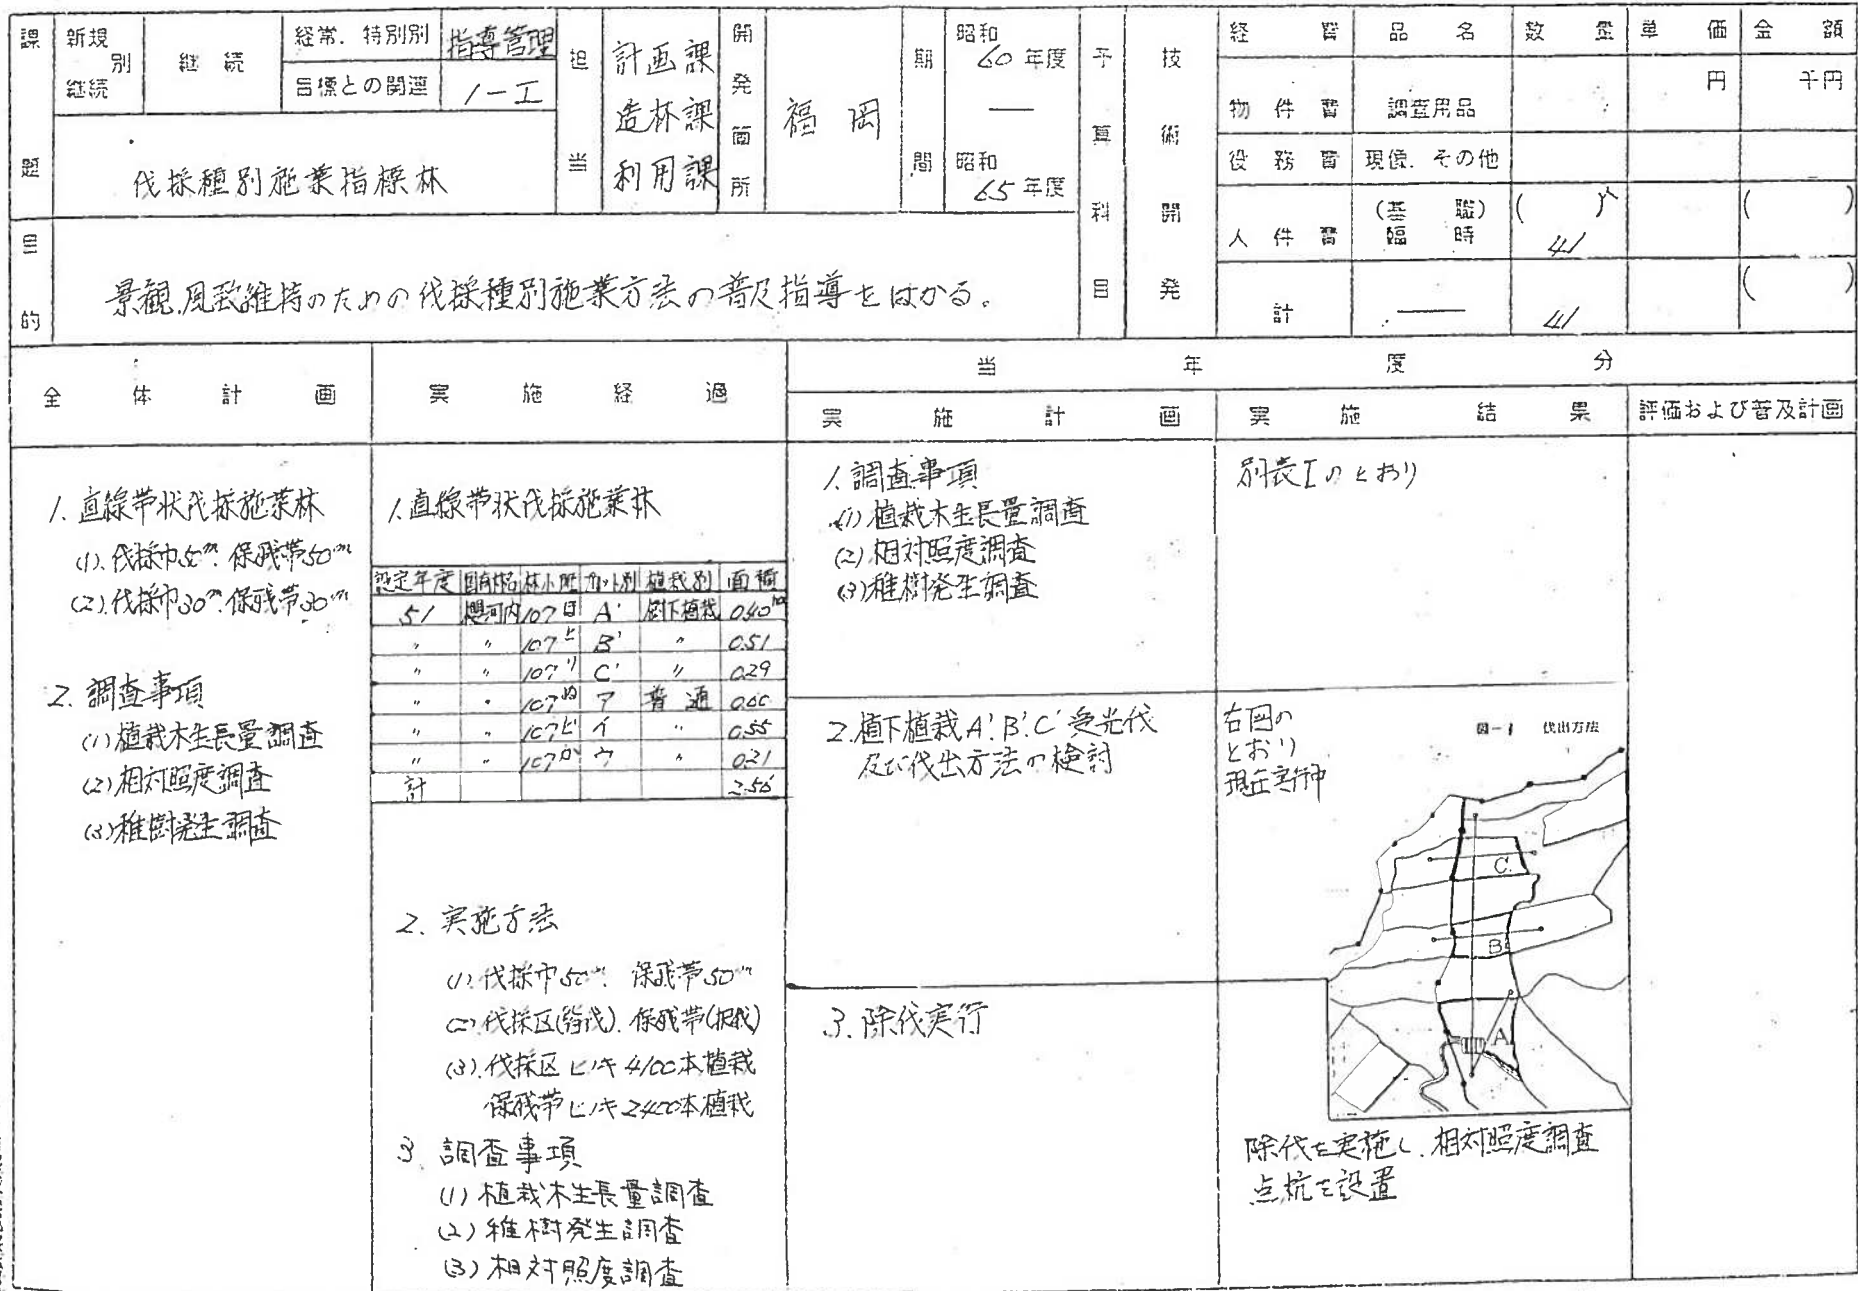 課題
新規
継続 別
継続
経常.特別別
指導管理
目標との関連
1-エ
伐採種別施業指標林
担当
計画課
造林課
利用課
開発箇所
福岡
期間
昭和60年度
―
昭和65年度
予算科目
技術開発
経費 品名 数量 単価 金額
円 千円
物件費 調査用品
役務費 現像.その他
人件費 (基職) 臨時 ( )人 41 ( )
計 ― 41 ( )
目的
景観.風致維持のための伐採種別施業方法の普及指導をはかる。
全体計画
1.直線帯状伐採施業林
(1).伐採巾50m.保残帯50m
(2).伐採巾30m.保残帯30m
2.調査事項
(1)植栽木生長量調査
(2)相対照度調査
(3)稚樹発生調査
実施経過
1.直線帯状伐採施業林
設定年度 国有林名 林小班 カット別 植栽別 面積
51 櫻河内 107日 A' 樹下植栽 0.40ha
〃 〃 107と B' 〃 0.51
〃 〃 107り C' 〃 0.29
〃 〃 107ぬ ア 普通 0.60
〃 〃 107 イ 〃 0.55
〃 〃 107か ウ 〃 0.21
計 2.56
2.実施方法
(1).伐採巾50m.保残帯50m
(2).伐採区(皆伐).保残帯(択伐)
(3).伐採区ヒノキ4100本植栽
保残帯ヒノキ2400本植栽
3.調査事項
(1)植栽木生長量調査
(2)稚樹発生調査
(3)相対照度調査
当年度分
実施計画
1.調査事項
(1)植栽木生長量調査
(2)相対照度調査
(3)稚樹発生調査
2.植下植栽A'.B'.C'受光伐
及び伐出方法の検討
3.除伐実行
実施結果
別表Iのとおり
右図の
とおり
現在実行中
図-1 伐出方法
C.
B.
A.
除伐を実施し.相対照度調査
点杭を設置
評価および普及計画